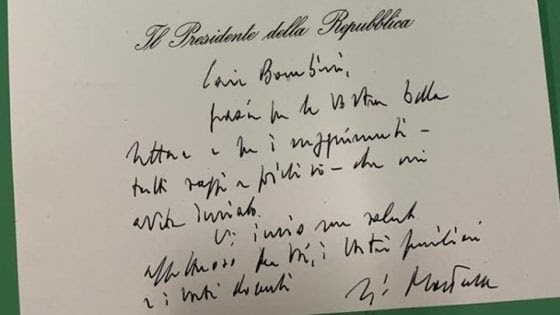 Il Presidente della Repubblica
Cari Bambini,
grazie per la vostra bella
lettera e per i suggerimenti -
tutti saggi e - che mi
avete inviato.
Vi invio un saluto
affettuoso per voi, i vostri familiari
e i vostri docenti
Mattarella